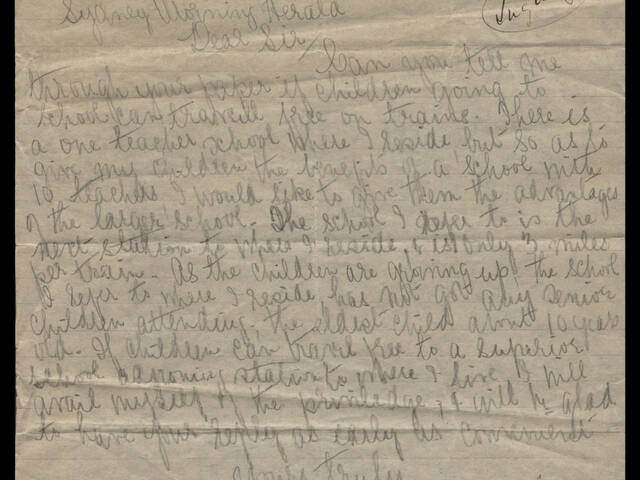 Sydney Morning Herald
Dear Sir/
Can you tell me
through your paper if children going to
school can travell free on trains. There is
a one teacher school where I reside but so as to
give my children the benefits of a school with
10 teachers I would like to give them the advantages
of the larger school. The school I refer to is the
next station to where I reside, & is only 3 miles
per train. As the children are growing up, the school
I refer to where I reside, has not got any senior
children attending, the eldest child about 10 years
old. If children can travel free to a superior
school station to where I live I will
avail myself of the priviledge, & I will be glad
to have your reply as early as convenient
Yours truly